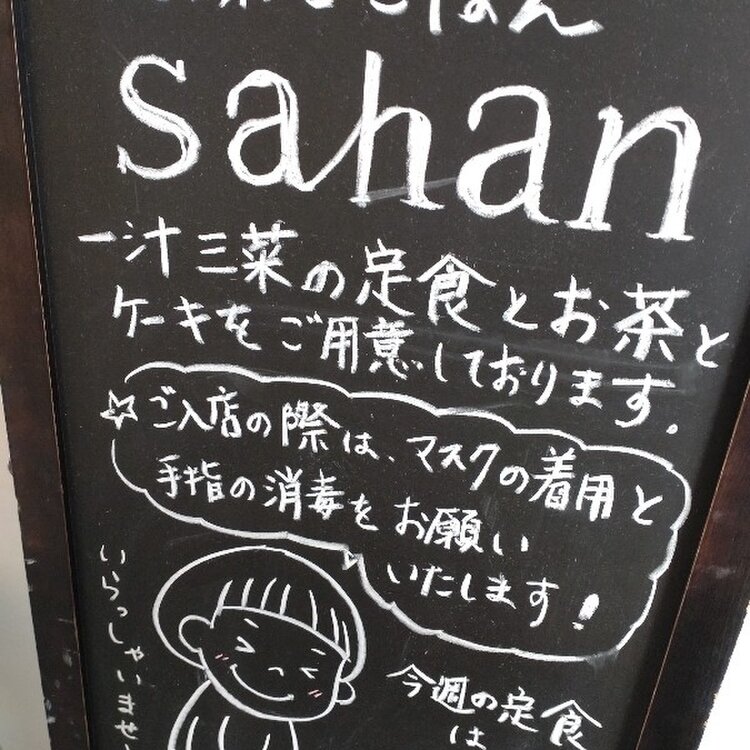 ごはん
sahan
一汁三菜の定食とお茶と
ケーキをご用意しております。
☆ご入店の際は、マスクの着用と
手指の消毒をお願い
いたします!
いらっしゃいませ
今週の定食
は